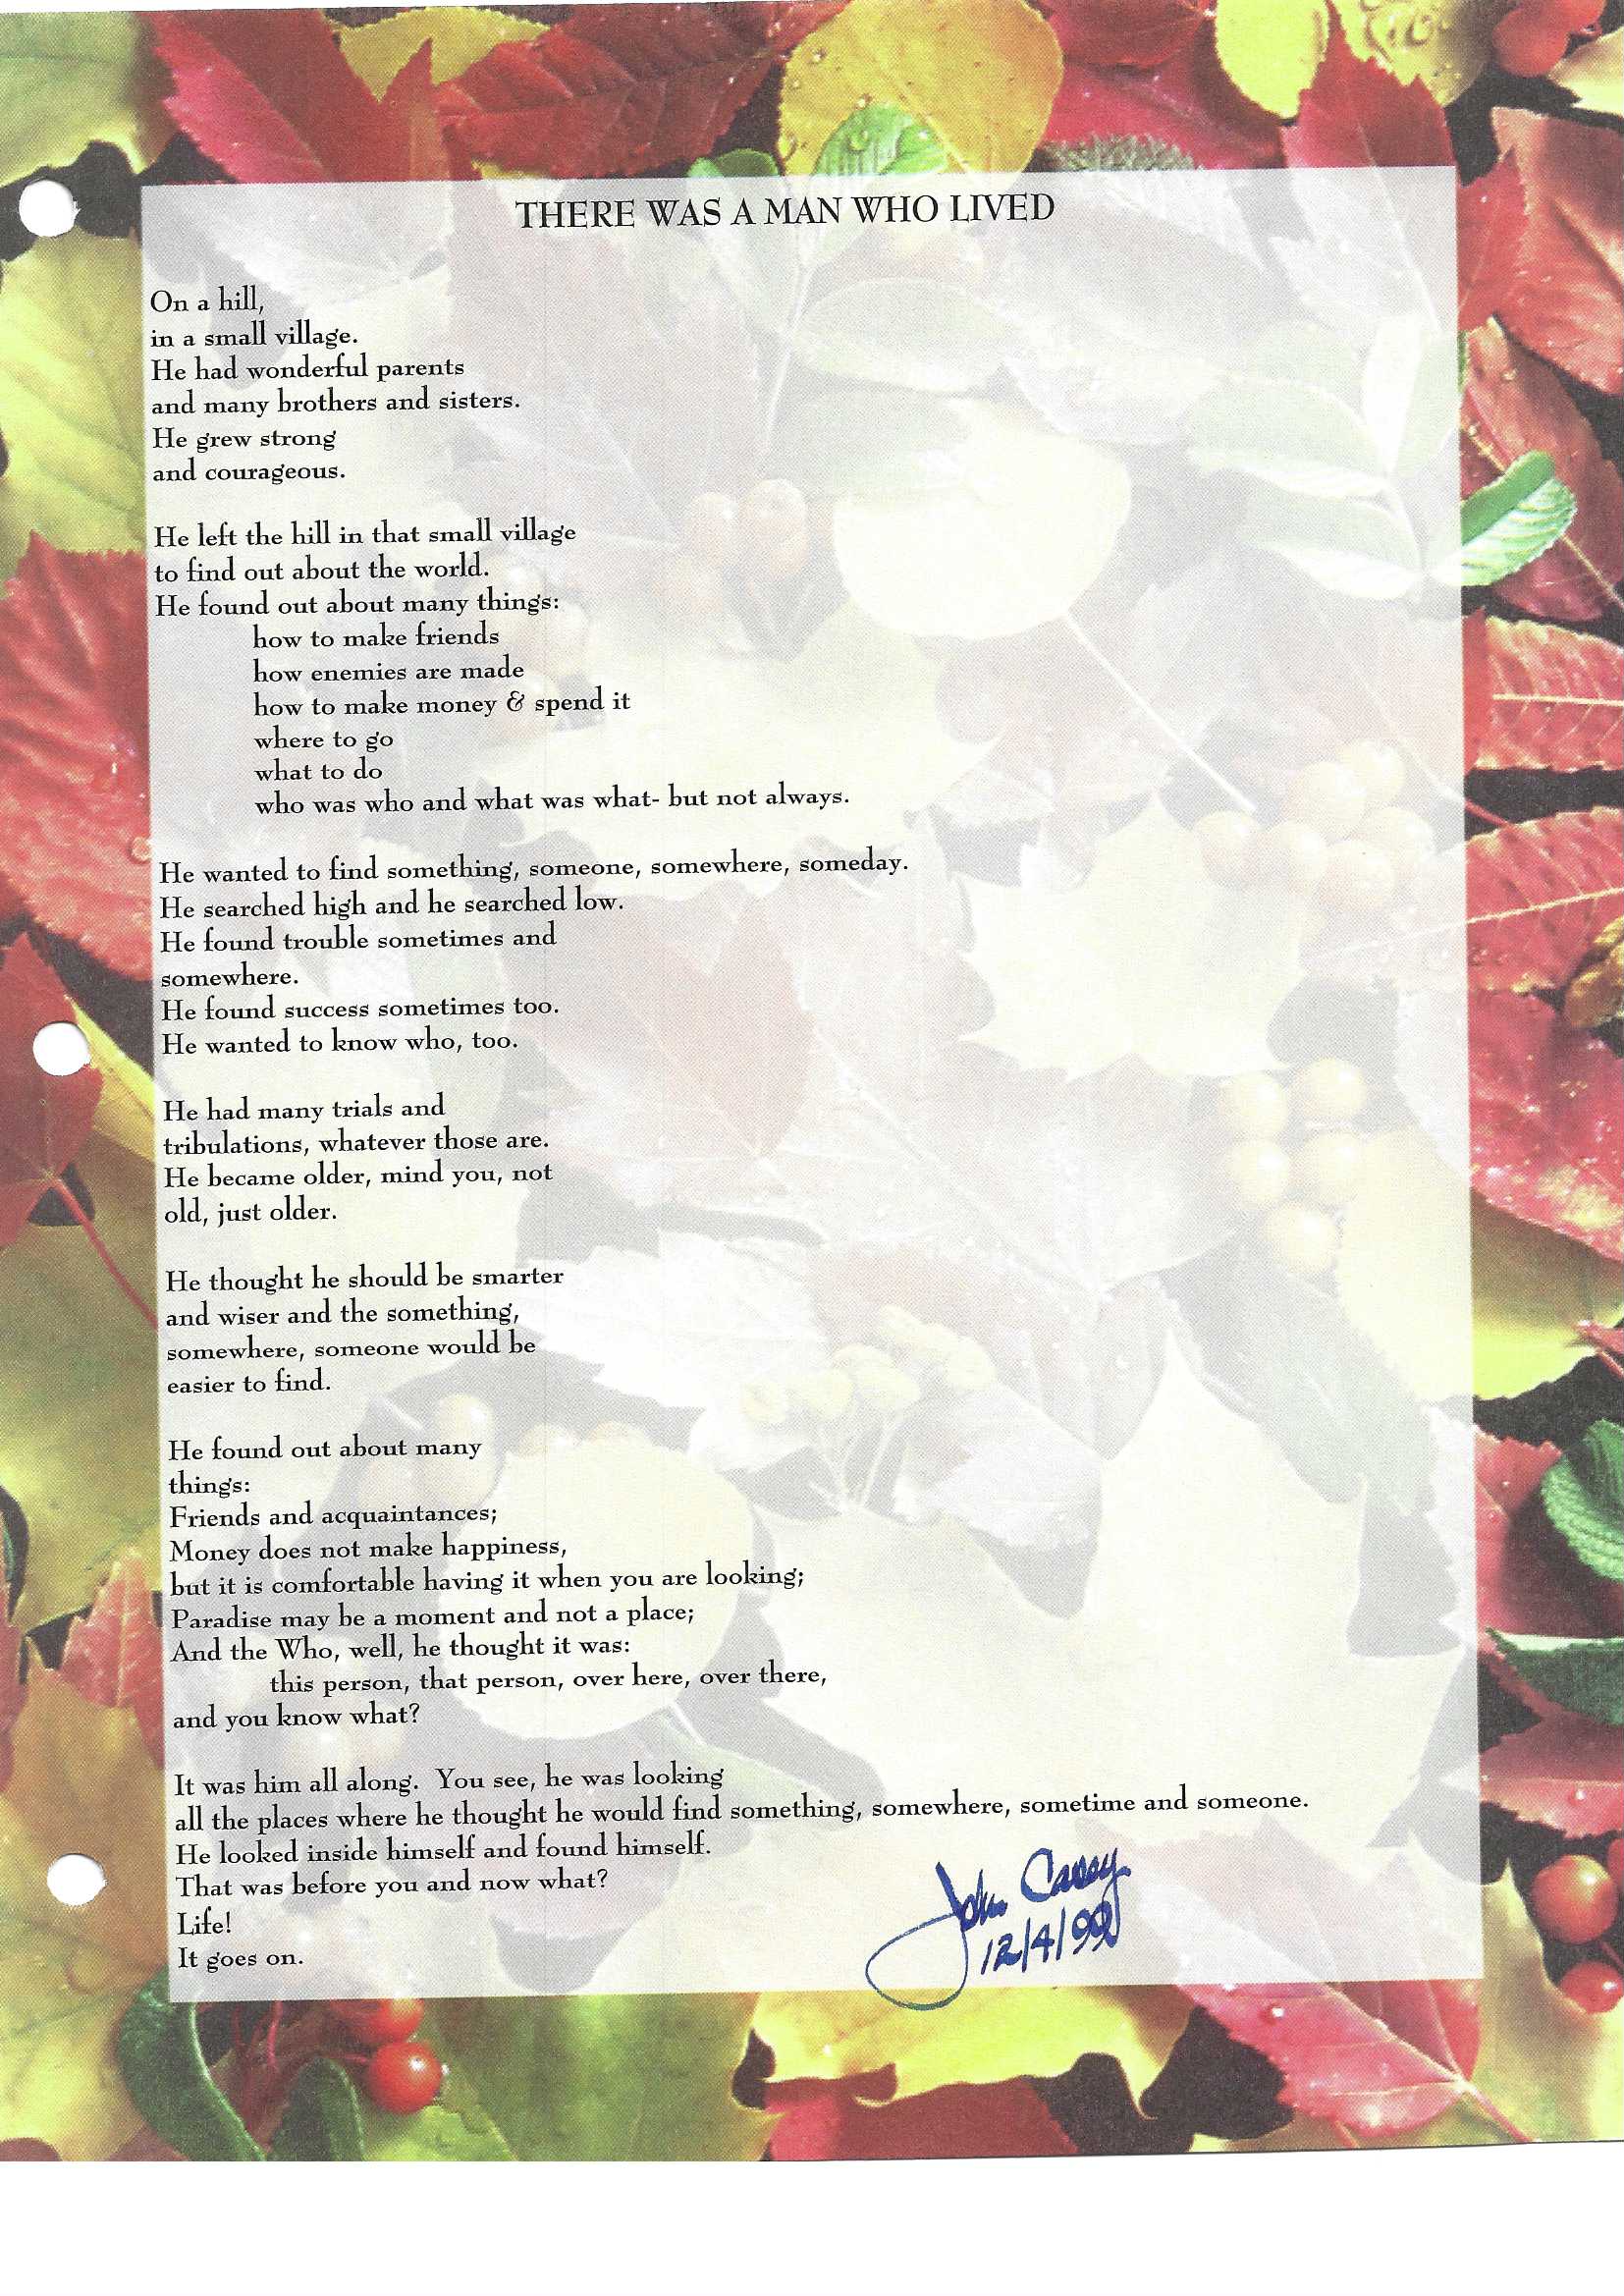 THERE WAS A MAN WHO LIVED
On a hill,
in a small village.
He had wonderful parents
and many brothers and sisters.
He grew strong
and courageous.
He left the hill in that small village
to find out about the world.
He found out about many things:
how to make friends
how enemies are made
how to make money & spend it
where to go
what to do
who was who and what was what- but not always.
He wanted to find something, someone, somewhere, someday.
He searched high and he searched low.
He found trouble sometimes and
somewhere.
He found success sometimes too.
He wanted to know who, too.
He had many trials and
tribulations, whatever those are.
He became older, mind you, not
old, just older.
He thought he should be smarter
and wiser and the something,
somewhere, someone would be
easier to find.
He found out about many
things:
Friends and acquaintances;
Money does not make happiness,
but it is comfortable having it when you are looking;
Paradise may be a moment and not a place;
And the Who, well, he thought it was:
this person, that person, over here, over there,
and you know what?
It was him all along.  You see, he was looking
all the places where he thought he would find something, somewhere, sometime and someone.
He looked inside himself and found himself.
That was before you and now what?
Life!
It goes on.
John Casey
12/4/99